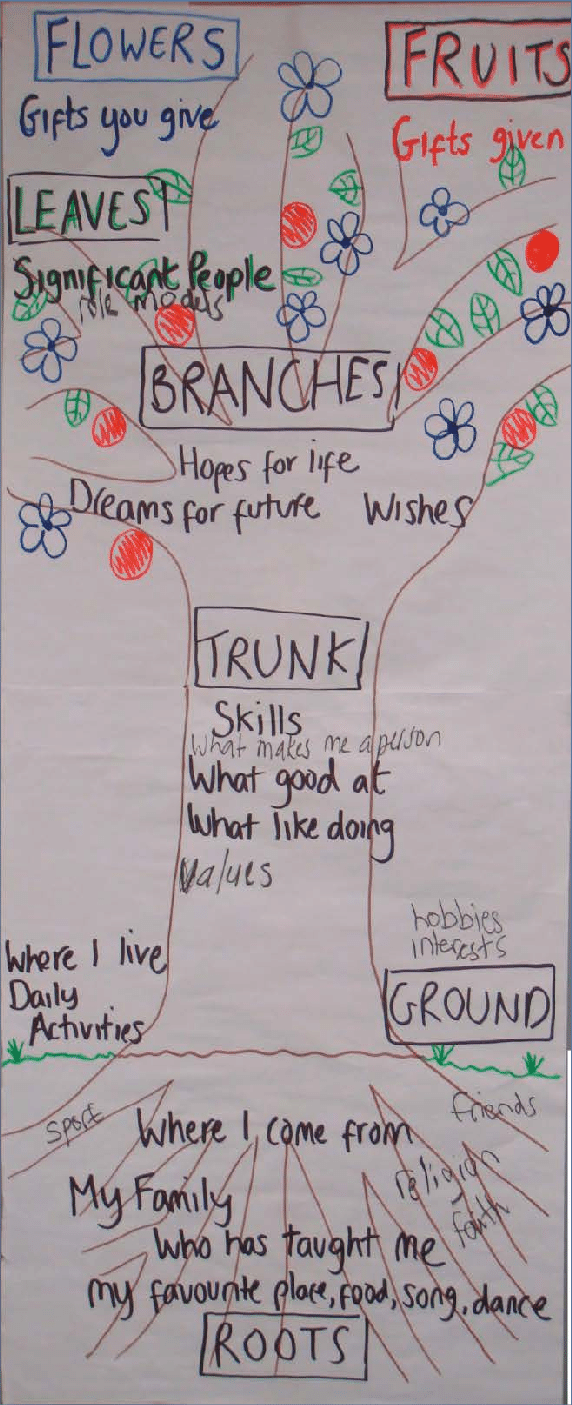 FLOWERS
Gifts you give
FRUITS
Gifts given
LEAVES
Significant People
role models
BRANCHES
Hopes for life
Dreams for future Wishes
TRUNK
Skills
What makes me a person
What good at
What like doing
values
hobbies
interests
Where I live
Daily
Activities
GROUND
sport
friends
Where I come from
religion
faith
My Family
Who has taught me
my favourite place, food, song, dance
ROOTS